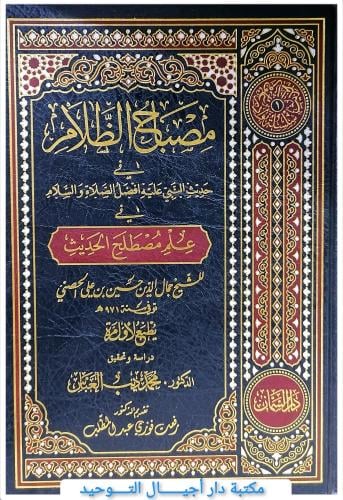 مصباح الظلام
في
حديث النبي عليه أفضل الصلاة والسلام
في
علم مصطلح الحديث
للشيخ جمال الدين حسين بن علي الحصني
توفي سنة ٩٧١هـ
يطبع لأول مرة
دراسة وتحقيق
الدكتور محمد
تقديم الدكتور
رفعت فوزي عبد المطلب
١
مكتبة دار أجيال التوحيد